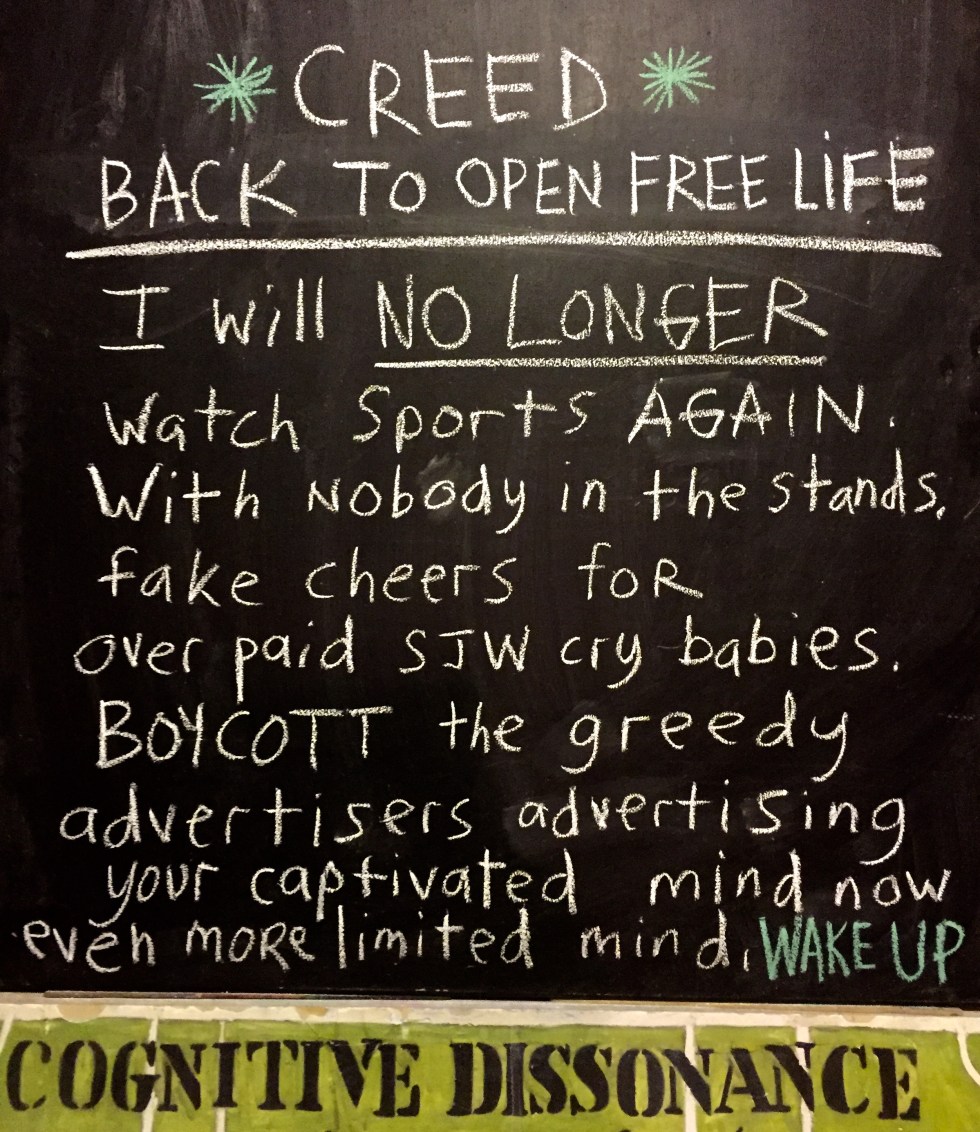 * CREED *
BACK TO OPEN FREE LIFE
I will NO LONGER
Watch Sports AGAIN.
With Nobody in the stands.
fake cheers foR
over paid SJW cry babies.
BOYCOTT the greedy
advertisers advertising
your captivated mind now
even moRe limited mind. WAKE UP
COGNITIVE DISSONANCE